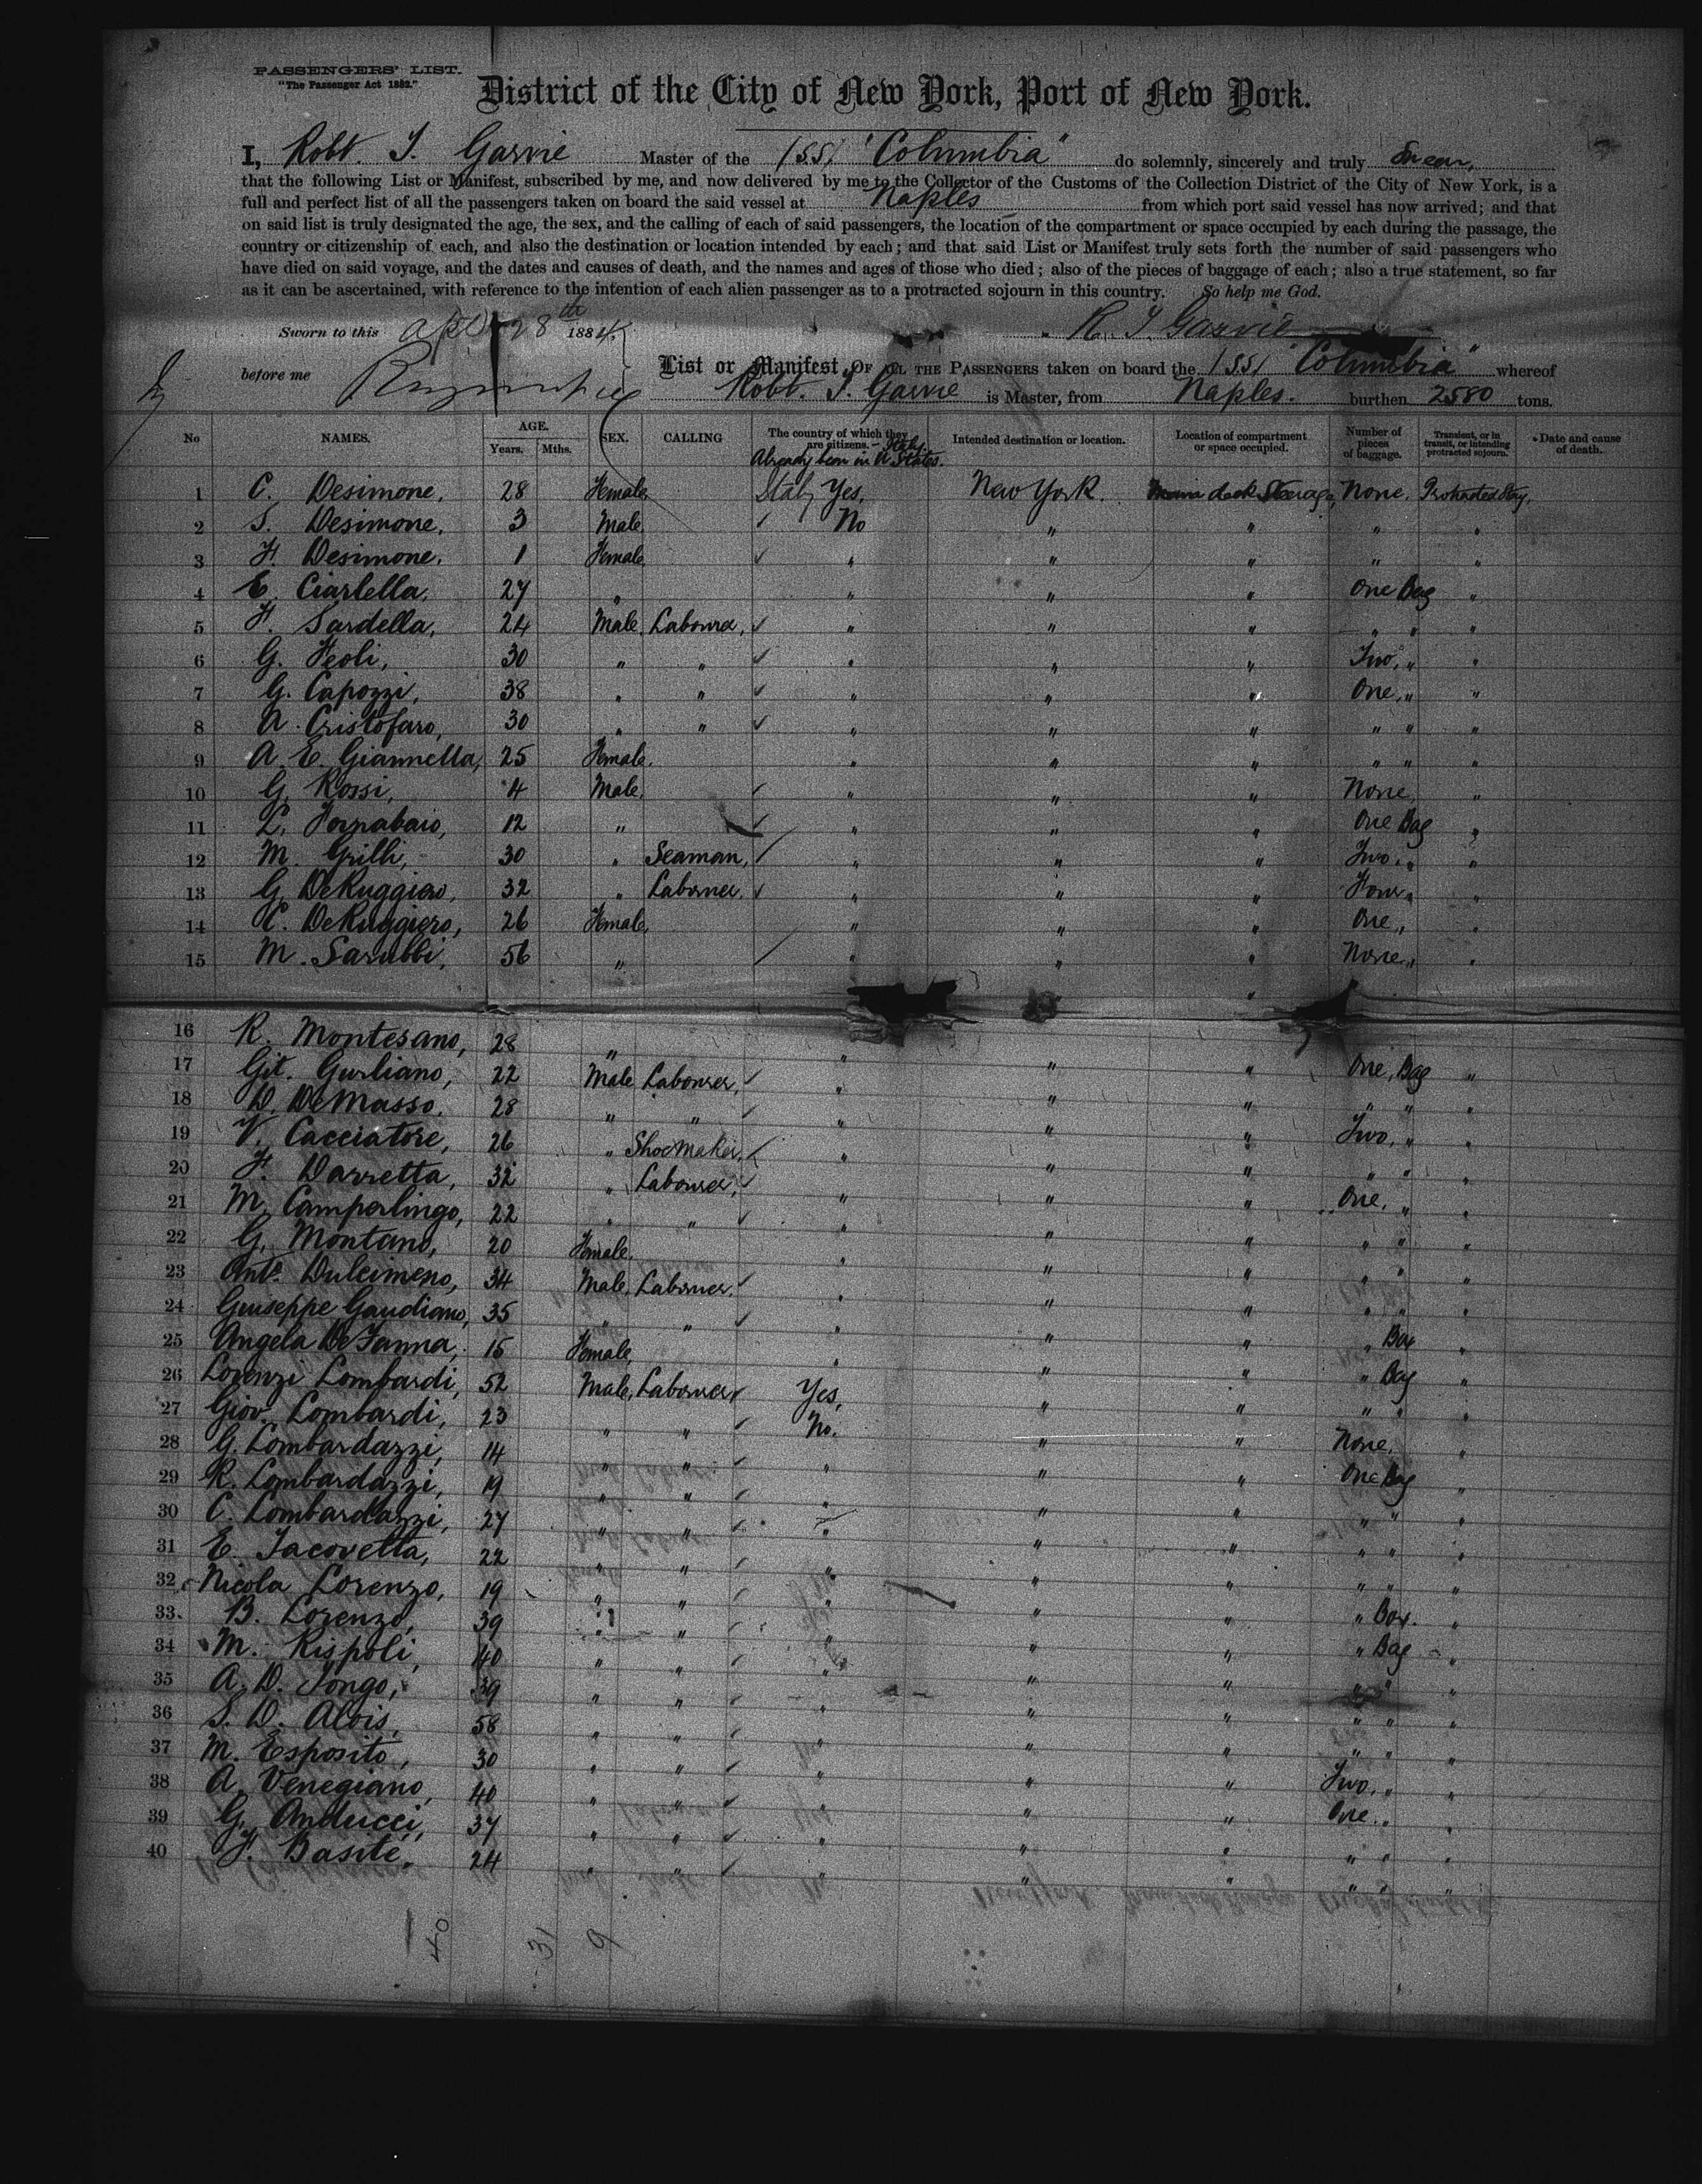 PASSENGERS' LIST.
"The Passenger Act 1882."
District of the City of New York, Port of New York.
I, Robt. J. Garvie Master of the (S.S) "Columbia" do solemnly, sincerely and truly Swear,
that the following List or Manifest, subscribed by me, and now delivered by me to the Collector of the Customs of the Collection District of the City of New York, is a
full and perfect list of all the passengers taken on board the said vessel at Naples from which port said vessel has now arrived; and that
on said list is truly designated the age, the sex, and the calling of each of said passengers, the location of the compartment or space occupied by each during the passage, the
country or citizenship of each, and also the destination or location intended by each; and that said List or Manifest truly sets forth the number of said passengers who
have died on said voyage, and the dates and causes of death, and the names and ages of those who died; also of the pieces of baggage of each; also a true statement, so far
as it can be ascertained, with reference to the intention of each alien passenger as to a protracted sojourn in this country. So help me God.
Sworn to this 28th 1884. R. J. Garvie
before me
List or Manifest OF ALL THE PASSENGERS taken on board the (S.S) "Columbia" whereof
Robt. J. Garvie is Master, from Naples. burthen 2580 tons.
No NAMES. AGE. Years. Mths. SEX. CALLING The country of which they are citizens. - Italy. Already been in U States. Intended destination or location. Location of compartment or space occupied. Number of pieces of baggage. Transient, or in transit, or intending protracted sojourn. Date and cause of death.
1 C. Desimone, 28 Female, Italy Yes, New York. Main deck Steerage, None, Protracted Stay,
2 S. Desimone, 3 Male, No " " " "
3 F. Desimone, 1 Female, " " " " "
4 E. Ciarlella, 27 " " " " One Bag "
5 F. Sardella, 24 Male, Labourer, " " " " " "
6 G. Feoli, 30 " " " " " Two, " "
7 G. Capozzi, 38 " " " " " One, " "
8 A. Cristofaro, 30 " " " " " " " "
9 A. E. Giannella, 25 Female, " " " " " "
10 G. Rossi, 4 Male, " " " None, "
11 L. Fornabaio, 12 " " " " One Bag "
12 M. Grilli, 30 " Seaman, " " " Two, " "
13 G. DeRuggiero, 32 " Labourer, " " " Four " "
14 C. DeRuggiero, 26 Female, " " " One, "
15 M. Sarubbi, 56 " " " " None, "
16 R. Montesano, 28 " " " "
17 Git. Gurliano, 22 Male Labourer, " " " One, Bag "
18 D. DeMasso, 28 " " " " " " " "
19 V. Cacciatore, 26 " Shoemaker, " " " Two, " "
20 F. Darretta, 32 " Labourer, " " " " " "
21 M. Camperlingo, 22 " " " " " One, " "
22 G. Montano, 20 Female, " " " " " "
23 Anto. Dulcimeno, 34 Male, Labourer, " " " " " "
24 Giuseppe Gaudiano, 35 " " " " " " " "
25 Angela DeIanna, 15 Female, " " " " Box "
26 Lorenzi Lombardi, 52 Male, Labourer Yes, " " " Bag "
27 Giov. Lombardi, 23 " " No. " " " " "
28 G. Lombardazzi, 14 " " " " " None, "
29 R. Lombardazzi, 19 " " " " " One Bag "
30 C. Lombardazzi, 27 " " " " " " " "
31 E. Iacovella, 22 " " " " " " " "
32 Nicola Lorenzo, 19 " " " " " " " "
33 B. Lorenzo, 39 " " " " " " Box. "
34 M. Rispoli, 40 " " " " " " Bag "
35 A. D. Longo, 39 " " " " " " " "
36 S. D. Alois, 58 " " " " " " " "
37 M. Esposito, 30 " " " " " " " "
38 A. Venegiano, 40 " " " " " Two, " "
39 G. Anducci, 37 " " " " " One, " "
40 F. Basile, 24 " " " " " " " "
40 31 9